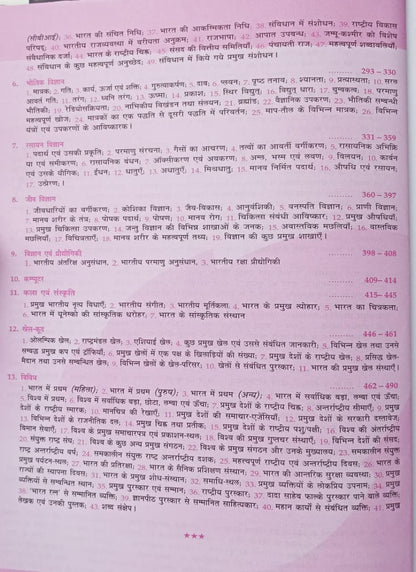 (सीबीआई); 36. भारत की संचित निधि; 37. भारत की आकस्मिकता निधि; 38. संविधान में संशोधन; 39. राष्ट्रीय विकास
परिषद्; 40. भारतीय राजव्यवस्था में वरीयता अनुक्रम; 41. राजभाषा; 42. आपात उपबन्ध; 43. जम्मू-कश्मीर को विशेष
संवैधानिक दर्जा; 44. भारत के राष्ट्रीय चिह्न; 45. संसद की वित्तीय समितियाँ; 46. पंचायती राज; 47. महत्वपूर्ण शब्दावलियाँ;
48. संविधान के कुछ महत्वपूर्ण अनुच्छेद; 49. संविधान में किये गये प्रमुख संशोधन।
6. भौतिक विज्ञान ........ 293 – 330
1. मात्रक; 2. गति; 3. कार्य, ऊर्जा एवं शक्ति; 4. गुरुत्वाकर्षण; 5. दाब; 6. प्लवन; 7. पृष्ठ तनाव; 8. श्यानता; 9. प्रत्यास्थता; 10. सरल
आवर्त गति; 11. तरंग; 12. ध्वनि तरंग; 13. ऊष्मा; 14. प्रकाश; 15. स्थिर विद्युत; 16. विद्युत धारा; 17. चुम्बकत्व; 18. परमाणु
भौतिकी; 19. रेडियोसक्रियता; 20. नाभिकीय विखंडन तथा संलयन; 21. ब्रह्मांड; 22. वैज्ञानिक उपकरण; 23. भौतिकी सम्बन्धी
महत्वपूर्ण खोज; 24. मात्रकों का एक पद्धति से दूसरी पद्धति में परिवर्तन; 25. माप-तौल के विभिन्न मात्रक; 26. विभिन्न
यंत्रों एवं उपकरणों के आविष्कारक।
7. रसायन विज्ञान ........ 331 – 359
1. पदार्थ एवं उसकी प्रकृति; 2. परमाणु संरचना; 3. गैसों का आचरण; 4. तत्वों का आवर्ती वर्गीकरण; 5. रासायनिक अभिक्रि
या एवं समीकरण; 6. रासायनिक बंधन; 7. ऑक्सीकरण एवं अवकरण; 8. अम्ल, भस्म एवं लवण; 9. विलयन; 10. कार्बन
एवं उसके यौगिक; 11. ईंधन; 12. धातुएँ; 13. अधातुएँ; 14. मिश्रधातु; 15. मानव निर्मित पदार्थ; 16. औषधि एवं रसायन;
17. उत्प्रेरण; ।
8. जीव विज्ञान ........ 360 – 397
1. जीवधारियों का वर्गीकरण; 2. कोशिका विज्ञान; 3. जैव-विकास; 4. आनुवंशिकी; 5. वनस्पति विज्ञान; 6. प्राणी विज्ञान;
7. मानव शरीर के तंत्र; 8. पोषक पदार्थ; 9. पोषण; 10. मानव रोग; 11. चिकित्सा संबंधी आविष्कार; 12. प्रमुख औषधियाँ;
13. प्रमुख चिकित्सा उपकरण; 14. जन्तु विज्ञान की विभिन्न शाखाओं के जनक; 15. अवास्तविक मछलियाँ; 16. वास्तविक
मछलियाँ; 17. विचित्रताएँ; 18. मानव शरीर के महत्वपूर्ण तथ्य; 19. विज्ञान की कुछ प्रमुख शाखाएँ।
9. विज्ञान एवं प्रौद्योगिकी ........ 398 – 408
1. भारतीय अंतरिक्ष अनुसंधान, 2. भारतीय परमाणु अनुसंधान, 3. भारतीय रक्षा प्रौद्योगिकी
10. कम्प्यूटर ........ 409– 414
11. कला एवं संस्कृति ........ 415– 445
1. प्रमुख भारतीय नृत्य विधाएँ, 2. भारतीय संगीत; 3. भारतीय मूर्तिकला, 4. भारत के प्रमुख त्योहार; 5. भारत का चित्रकला;
6. भारत में यूनेस्को की सांस्कृतिक धरोहर; 7. भारत के सांस्कृतिक संस्थान
12. खेल-कूद ........ 446 – 461
1. ओलम्पिक खेल; 2. राष्ट्रमंडल खेल; 3. एशियाई खेल; 4. कुछ प्रमुख खेल एवं उससे संबंधित जानकारी; 5. विभिन्न खेल तथा उनसे
सम्बद्ध प्रमुख कप एवं ट्रॉफियाँ; 6. प्रमुख खेलों में एक पक्ष के खिलाड़ियों की संख्या; 7. प्रमुख देशों के राष्ट्रीय खेल; 8. प्रसिद्ध खेल-
मैदान तथा उनसे सम्बन्धित खेल; 9. विभिन्न खेलों के खेल-परिसर; 10. खेलों से संबंधित पुरस्कार; 11. भारत की प्रमुख खेल संस्थाएँ।
13. विविध ........ 462 – 490
1. भारत में प्रथम (महिला); 2. भारत में प्रथम (पुरुष); 3. भारत में प्रथम (अन्य); 4. भारत में सर्वाधिक बड़ा, लम्बा एवं ऊँचा;
5. विश्व में प्रथम; 6. विश्व में सर्वाधिक बड़ा, छोटा, लम्बा एवं ऊँचा; 7. प्रमुख देशों के राष्ट्रीय चिह्न; 8. अन्तर्राष्ट्रीय सीमाएँ; 9. प्रमुख
देशों के राष्ट्रीय स्मारक; 10. मानचित्र की रेखाएँ; 11. प्रमुख देशों की समाचार-एजेंसियाँ; 12. प्रमुख देशों के सरकारी दस्तावेज;
13. विभिन्न देशों के राजनीतिक दल; 14. प्रमुख चिह्न तथा प्रतीक; 15. प्रमुख देशों के राष्ट्रीय पशु/पक्षी; 16. विश्व की अंतर्राष्ट्रीय
विमान सेवाएँ; 17. विश्व के प्रमुख समाचारपत्र एवं प्रकाशन-स्थल; 18. विश्व की प्रमुख गुप्तचर संस्थाएँ; 19. विभिन्न देशों की संसद;
20. संयुक्त राष्ट्र संघ; 21. विश्व के कुछ अन्य प्रमुख संगठन; 22. विश्व के प्रमुख संगठन और उनके मुख्यालय; 23. समकालीन संयुक्त
राष्ट्र अन्तर्राष्ट्रीय वर्ष; 24. समकालीन संयुक्त राष्ट्र अन्तर्राष्ट्रीय दशक; 25. महत्वपूर्ण राष्ट्रीय एवं अन्तर्राष्ट्रीय दिवस; 26. भारत के
प्रमुख पर्यटन-स्थल; 27. भारत की प्रतिरक्षा; 28. भारत के सैनिक प्रशिक्षण संस्थान; 29. भारत की आन्तरिक सुरक्षा व्यवस्था; 30. प्रमुख
राज्यों की स्थापना दिवस; 31. भारत के प्रमुख शोध-संस्थान; 32. समाधि-स्थल; 33. प्रमुख व्यक्तियों के लोकप्रिय उपनाम; 34. प्रमुख
व्यक्तियों से सम्बन्धित स्थान; 35. प्रमुख पुरस्कार एवं सम्मान; 36. राष्ट्रीय पुरस्कार; 37. दादा साहेब फाल्के पुरस्कार पाने वाले व्यक्ति;
38. 'भारत रत्न' से सम्मानित व्यक्ति; 39. ज्ञानपीठ पुरस्कार से सम्मानित साहित्यकार; 40. महान कार्यों से संबंधित व्यक्ति; 41. प्रमुख
लेखक एवं उनकी पुस्तक; 43. शब्द संक्षेप।
★★★